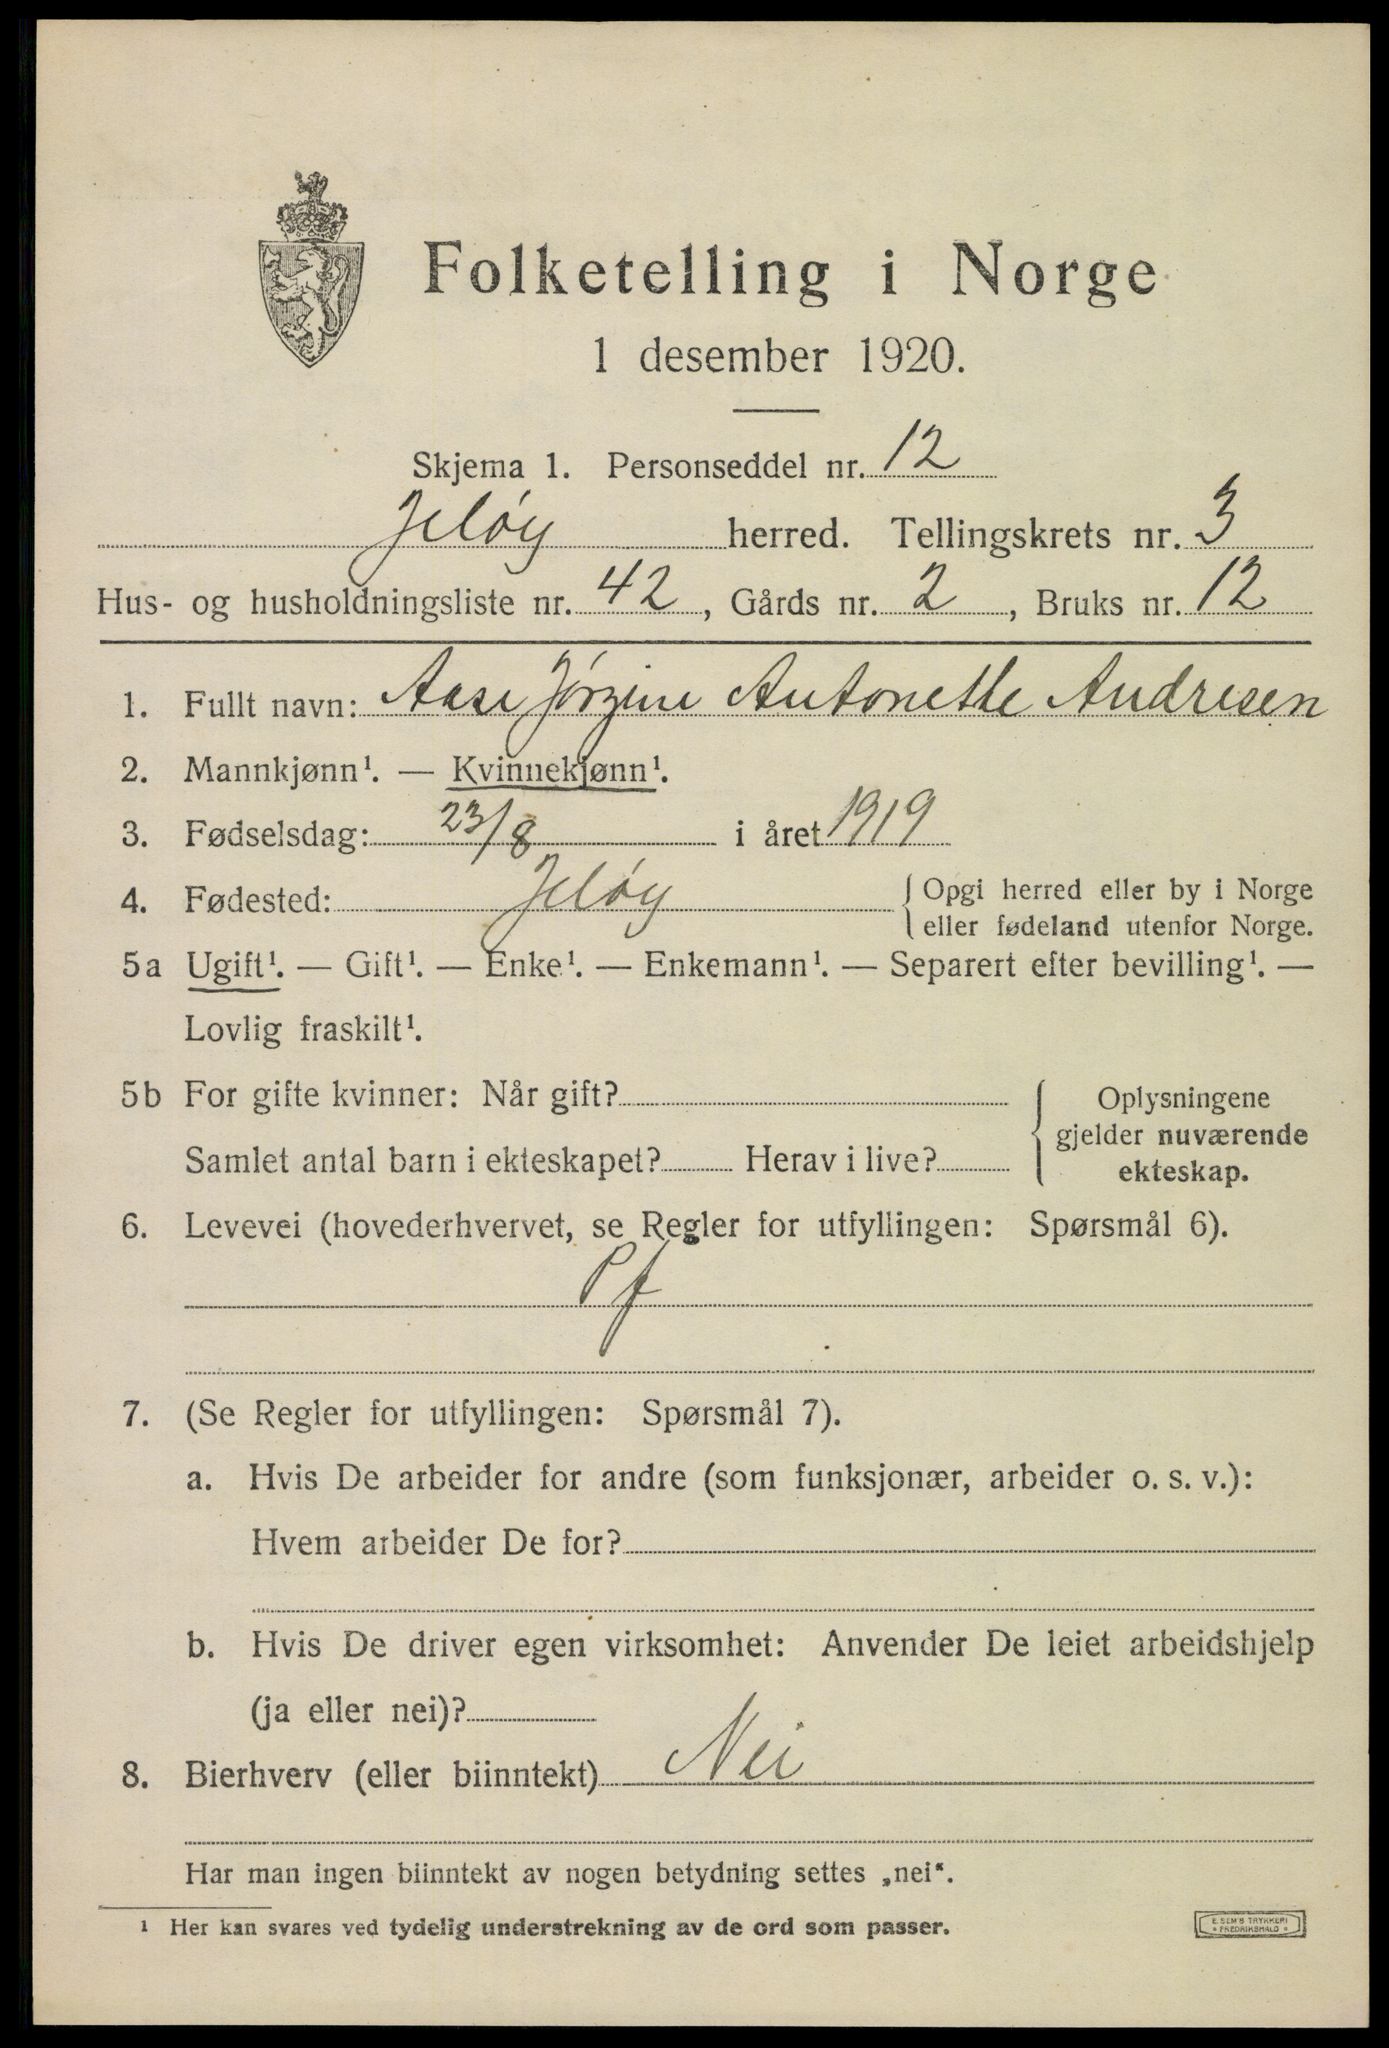 Folketelling i Norge
1 desember 1920.
Skjema 1. Personseddel nr. 12
Jeløy herred. Tellingskrets nr. 3
Hus- og husholdningsliste nr. 42, Gårds nr. 2, Bruks nr. 12
1. Fullt navn: Aase Jørgine Antonette Andresen
2. Mannkjønn¹. — Kvinnekjønn¹.
3. Fødselsdag: 23/8 i året 1919
4. Fødested: Jeløy { Opgi herred eller by i Norge
eller fødeland utenfor Norge.
5a Ugift¹. — Gift¹. — Enke¹. — Enkemann¹. — Separert efter bevilling¹. —
Lovlig fraskilt¹.
5b For gifte kvinner: Når gift?
Samlet antal barn i ekteskapet? Herav i live?
Oplysningene
gjelder nuværende
ekteskap.
6. Levevei (hovederhvervet, se Regler for utfyllingen: Spørsmål 6).
Pf
7. (Se Regler for utfyllingen: Spørsmål 7).
a. Hvis De arbeider for andre (som funksjonær, arbeider o. s. v.):
Hvem arbeider De for?
b. Hvis De driver egen virksomhet: Anvender De leiet arbeidshjelp
(ja eller nei)?
8. Bierhverv (eller biinntekt) Nei
Har man ingen biinntekt av nogen betydning settes „nei“.
¹ Her kan svares ved tydelig understrekning av de ord som passer.
E. SEM'S TRYKKERI
FREDRIKSHALD